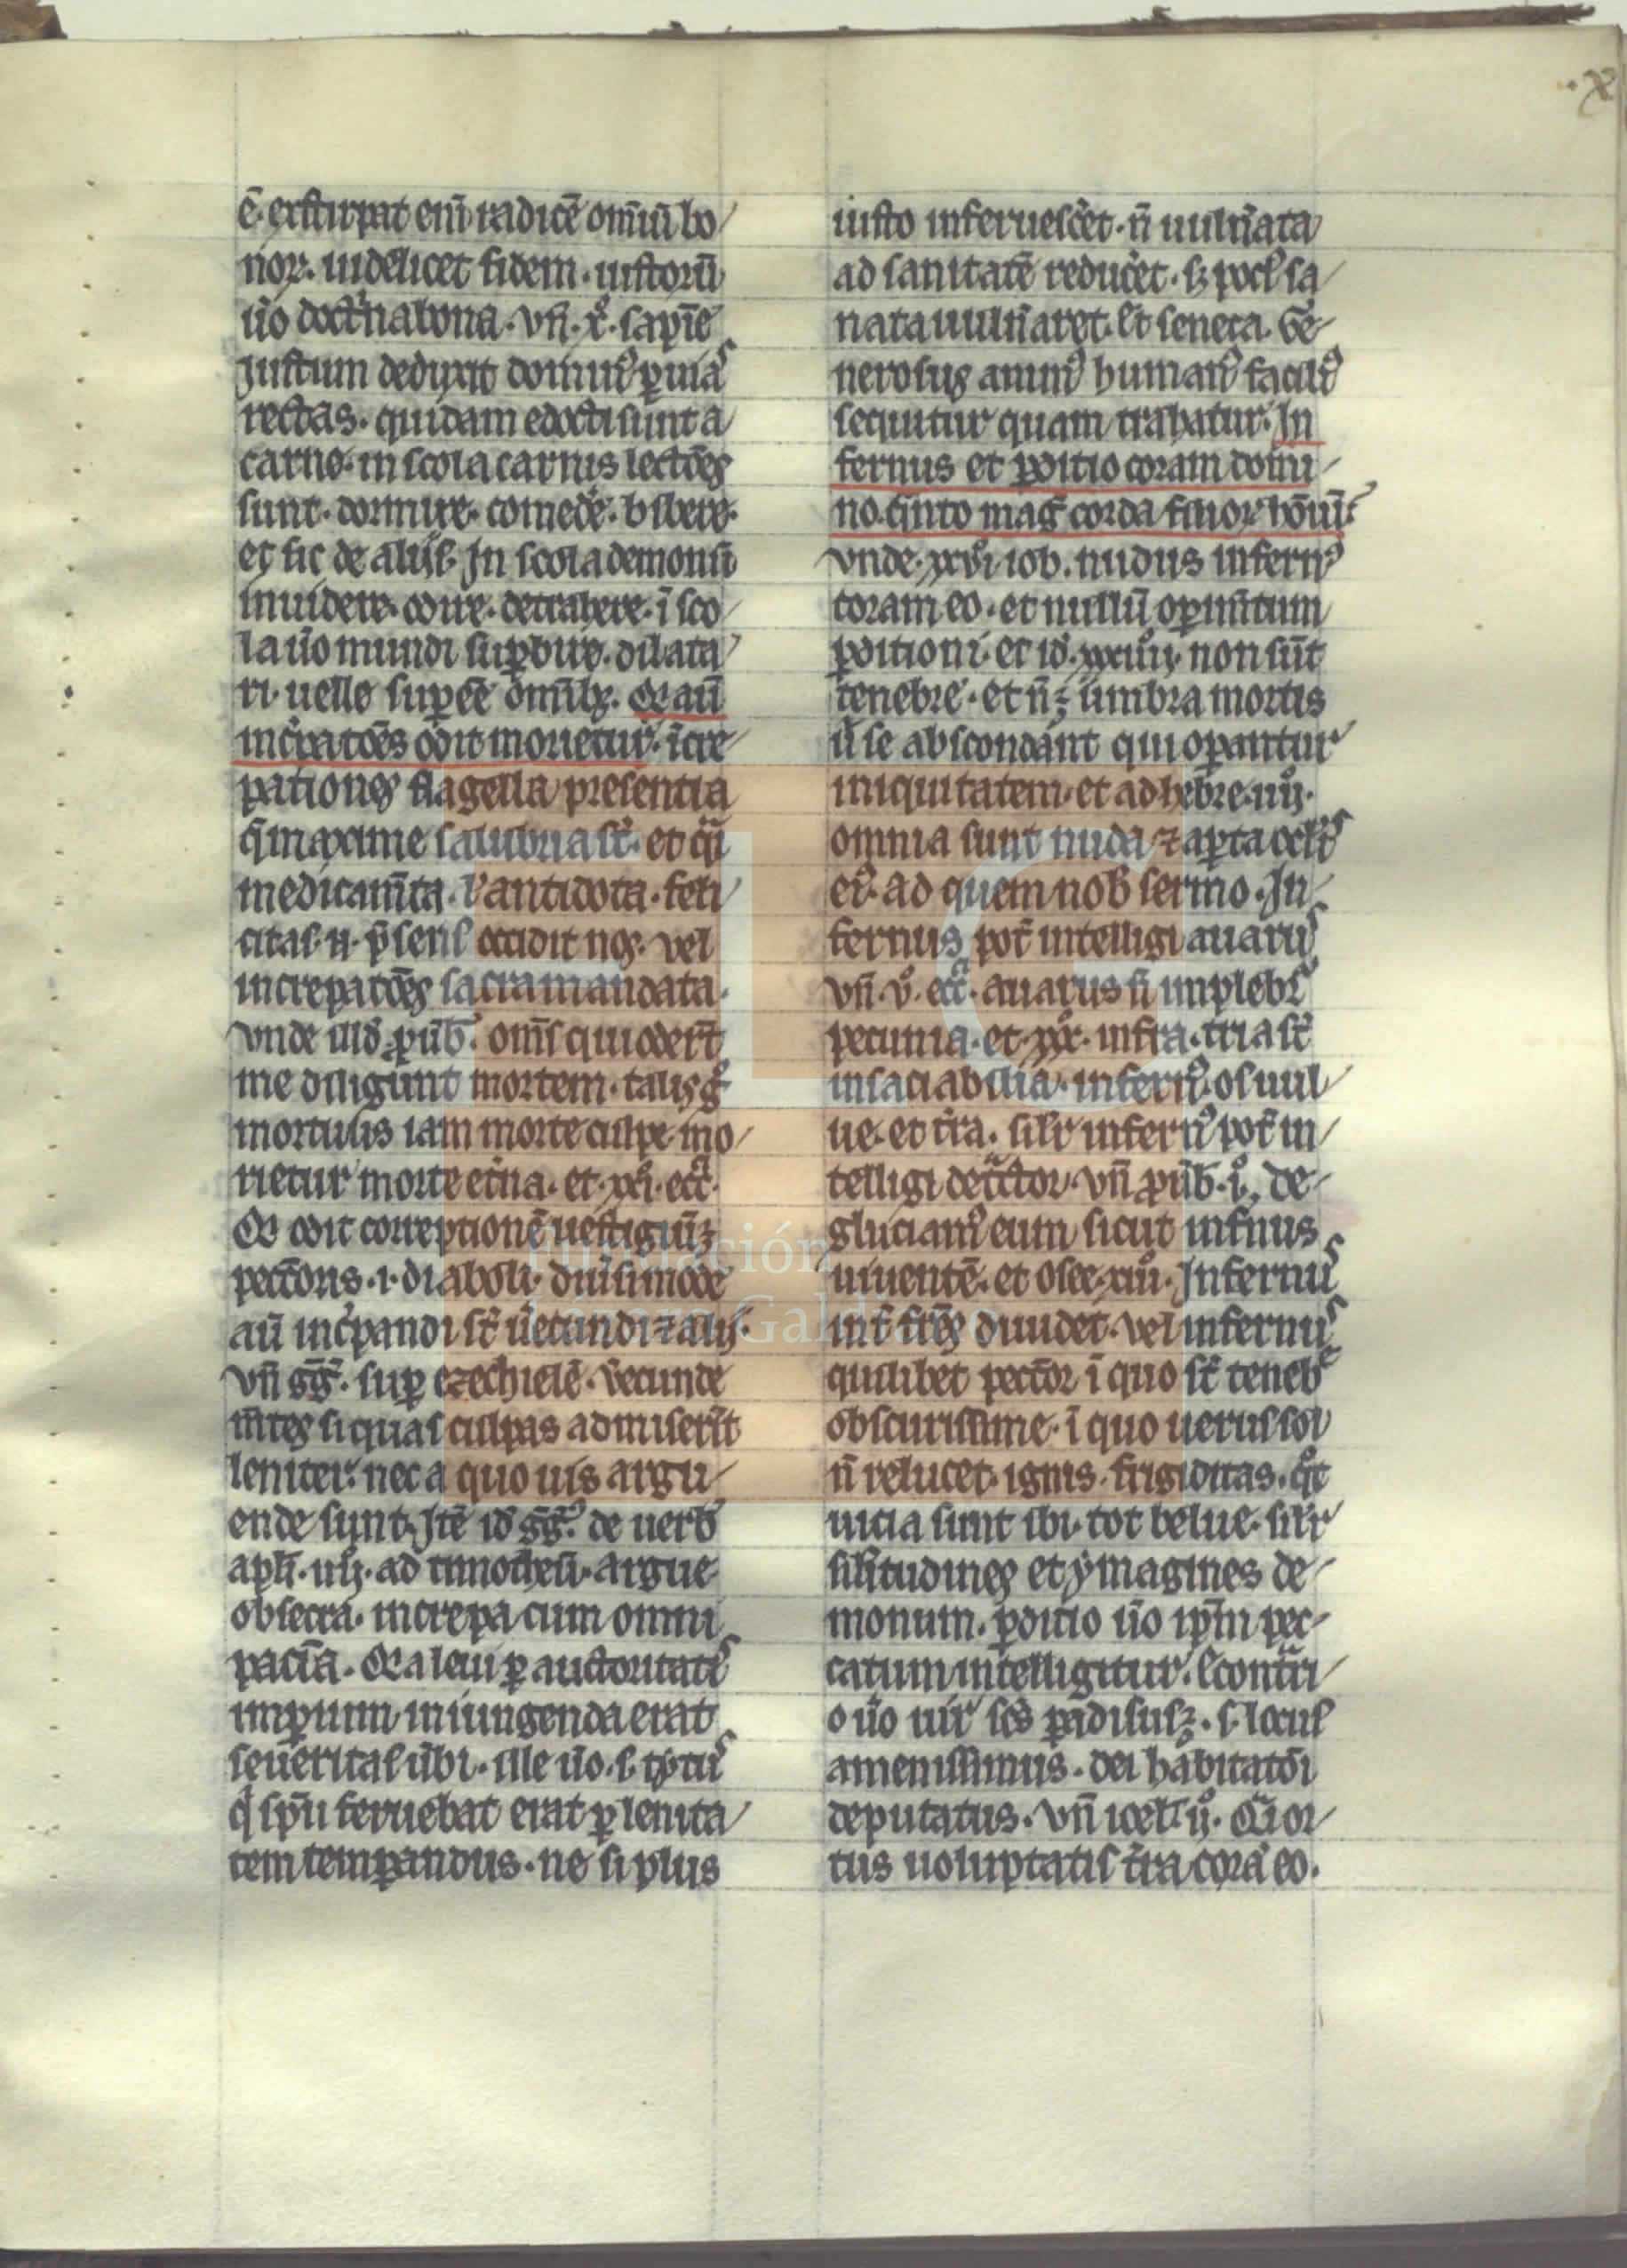 .x
ē. exstirpat enī radicē om̄iū bo/
noꝝ. uidelicet fidem. iustorū
ūo doct'na bona. vn̄. x°. sapīe
Justum deduxit domin᷒ ꝑ uias
rectas. quidam edocti sunt a
carne. in scola carnis lectōes
sunt. dormire. comedē. bibere.
et sic de aliis. In scola demonū
inuidere. odire. detrahere. ī sco/
la ūo mundi suꝑbire. dilata/
ri. uelle suꝑ eē om̄ibꝫ. Qi aū
inc'patōes odit morietur. īcre/
pationes flagella presentia
q̄ maxime salubria st̄. et q̄i
medicam̄ta. ł antidota. feli/
citas n̄. p̄sens occidit nos. vel
increpatōes sacra mandata.
vnde illd̄ ꝓūb. om̄s qui oder̄t
me diligunt mortem. talis g°
mortuus iam morte culpe mo/
rietur morte et'na. et. xxi. ecc̄i.
Qi odit correptionē uestigiū ꝫ
pecc̄oris .i. diaboli. diūsimode
aū inc'pandi st̄ uecundi ⁊ alij.
vn̄ gḡ. suꝑ ezechielē. Vecunde
m̄tes si quas culpas admiser̄t
leniter. nec a quo uis argu/
ende sunt. Itē id̄ gḡ. de uerb̄
apłi. iiij. ad timotheū. argue
obsecra. increpa cum omni
pac̄ia. Qi a leui ꝑ auctoritatis
imꝑium iniungenda erat
seueritas ūbi. ille ūo .s. tytus
q̄ sp̄u feruebat erat ꝑ lenita/
tem temꝑandus. ne si plus
iusto inferuesc̄et. n̄ uuln̄ata
ad sanitatē reduc̄et. sꝫ poci᷒ sa/
nata uuln̄aret. Et seneca. Ge/
nerosus anim᷒ human᷒ facili᷒
sequitur quam trahatur. In
fernus et ꝑditio coram domi/
no. q̄nto maḡ corda filioꝝ hōim̄.
vnde. xxvi. iob. nudus infern᷒
coram eo. et nullū oꝑim̄tum
ꝑditioni. et id̄. xxxiiij. non sūt
tenebre. et n̄ ē umbra mortis
ū se abscondant qui oꝑantur
iniquitatem. et ad hebre. iiij.
omnia sunt nuda ⁊ aꝑta oclis
ei᷒. ad quem nob̄ sermo. In/
fernus pot̄ intelligi auarus
vn̄. v°. ecc̄i. auarus n̄ implebr̄
pecunia. et. xxx. infra. tria st̄
insaciabilia. infern᷒. os uul/
ue. et t'ra. silr̄ infern᷒ pot̄ in/
telligi det'ctor. vn̄ ꝓūb. i°. de/
gluciam᷒ eum sicut inf'nus
uiuentē. et Osee. xiii. Infernus
int̄ fr̄es diuidet. vel infernus
quilibet pecc̄or ī quo st̄ teneb'e
obscurissime. ī quo uerus sol
n̄ relucet. ignis. frigiditas. q°t
uicia sunt ibi. tot belue. silr̄
silitudines et ymagines de/
monum. ꝑditio ūo ip̄m pec/
catum intelligitur. Econtri/
o ūo uir scs̄ ꝑadisus ꝫ .s. locus
amenissimus. dei habitatōi
deputatus. vn̄ ioel̄. ij°. Qi or/
tus uoluptatis t'ra corā eo.
Fundación
Lázaro Galdiano